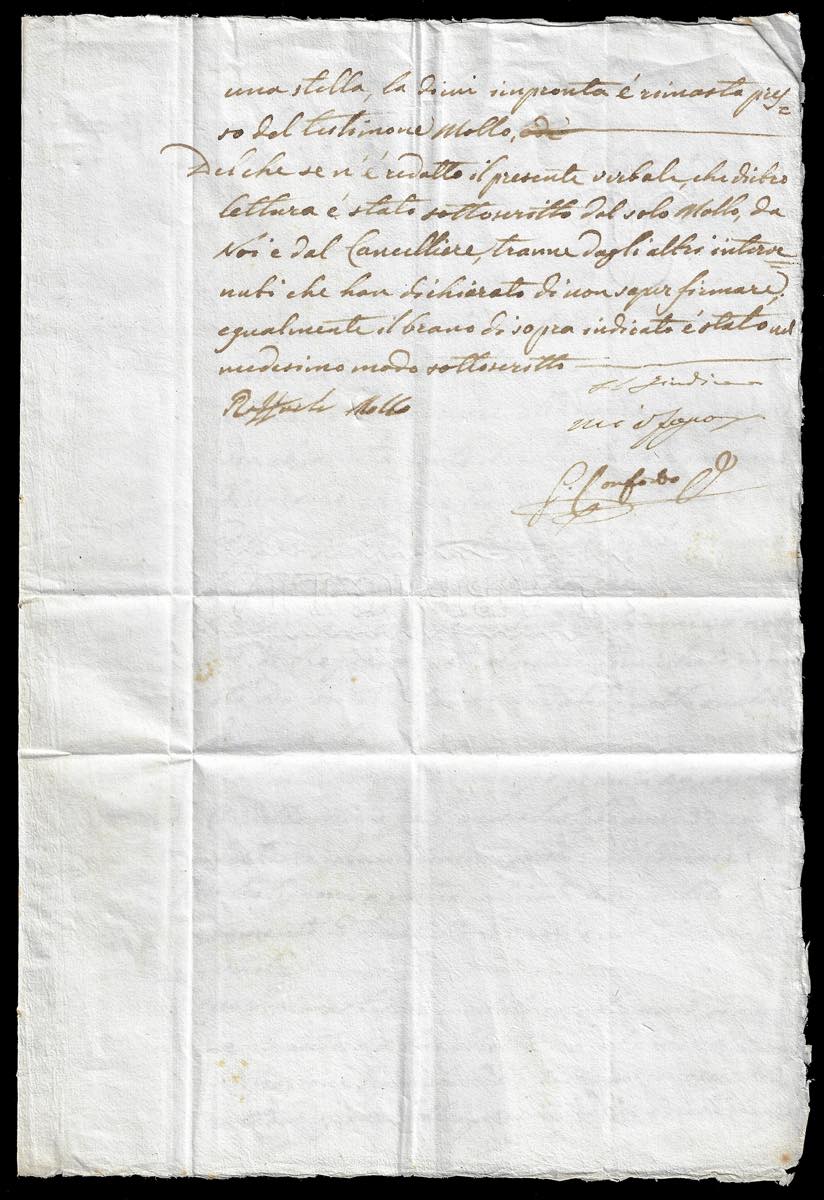 una stella, la di cui impronta é rimasta pres=
so del testimone Mollo,
Del che se n'é redatto il presente verbale, che dietro
lettura é stato sottoscritto dal solo Mollo, da
Noi e dal Cancelliere, tranne dagli altri interve=
nuti che han dichiarato di non saper firmare,
egualmente il brano di sopra indicato é stato nel
medesimo modo sottoscritto
Il Giudice
Raffaele Mollo